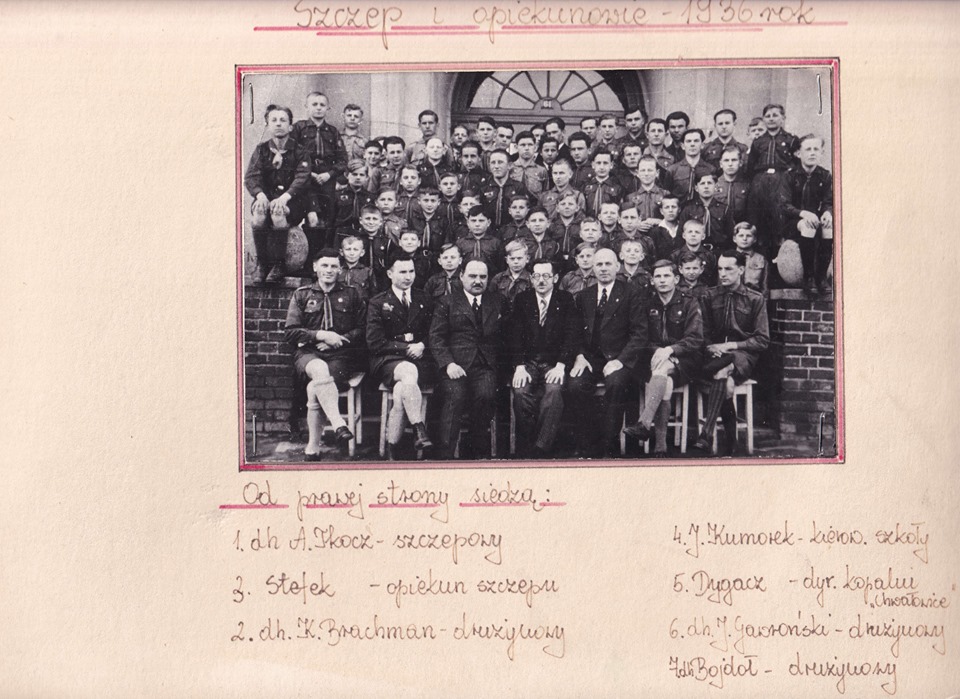 Szczep i opiekunowie - 1936 rok
61
Od prawej strony siedzą:
1. dh A. Tkocz - szczepowy
3. Stefek - opiekun szczepu
2. dh. K. Brachman - drużynowy
4. J. Kumorek - kierow. szkoły
5. Dygacz - dyr. kopalni
"Chwałowice"
6. dh. J. Gawroński - drużynowy
7 dh Bojdoł - drużynowy